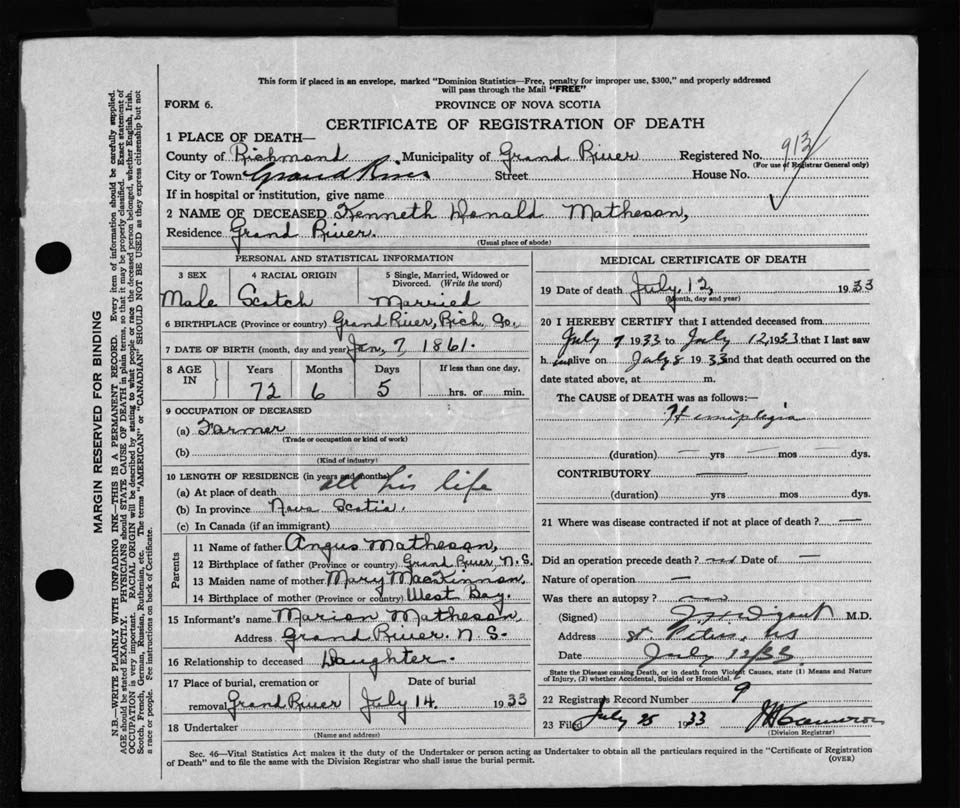 This form if placed in an envelope, marked "Dominion Statistics—Free, penalty for improper use, $300," and properly addressed
will pass through the Mail "FREE"
FORM 6.
PROVINCE OF NOVA SCOTIA
CERTIFICATE OF REGISTRATION OF DEATH
1 PLACE OF DEATH—
County of Richmond Municipality of Grand River Registered No. 913
(For use of Registrar General only)
City or Town Grand River Street House No.
If in hospital or institution, give name
2 NAME OF DECEASED Kenneth Donald Matheson,
Residence Grand River.
(Usual place of abode)
PERSONAL AND STATISTICAL INFORMATION
3 SEX 4 RACIAL ORIGIN 5 Single, Married, Widowed or Divorced. (Write the word)
Male Scotch Married
6 BIRTHPLACE (Province or country) Grand River, Rich. Co.
7 DATE OF BIRTH (month, day and year) Jan, 7 1861.
8 AGE IN Years Months Days If less than one day,
72 6 5 hrs. or min.
9 OCCUPATION OF DECEASED
(a) Farmer
(Trade or occupation or kind of work)
(b)
(Kind of industry)
10 LENGTH OF RESIDENCE (in years and months)
(a) At place of death all his life
(b) In province Nova Scotia.
(c) In Canada (if an immigrant)
Parents
11 Name of father Angus Matheson,
12 Birthplace of father (Province or country) Grand River, N.S.
13 Maiden name of mother Mary MacKinnon,
14 Birthplace of mother (Province or country) West Bay.
15 Informant's name Marion Matheson
Address Grand River. N.S.
16 Relationship to deceased Daughter.
17 Place of burial, cremation or removal Grand River Date of burial July 14. 1933
18 Undertaker
(Name and address)
MEDICAL CERTIFICATE OF DEATH
19 Date of death July. 12, 1933
(Month, day and year)
20 I HEREBY CERTIFY that I attended deceased from
July 7 1933 to July 12, 1933 that I last saw
h im alive on July 8 1933 and that death occurred on the
date stated above, at m.
The CAUSE of DEATH was as follows:
Hemiplegia
(duration) — yrs — mos — dys.
CONTRIBUTORY —
(duration) yrs. mos. dys.
21 Where was disease contracted if not at place of death? —
Did an operation precede death? no Date of —
Nature of operation —
Was there an autopsy? no
(Signed) M.D.
Address St Peters, NS
Date July 12/33
State the Disease causing Death, or in death from Violent Causes, state (1) Means and Nature
of Injury, (2) whether Accidental, Suicidal or Homicidal.
22 Registrars Record Number 9
23 Filed July 25 1933 Cameron
(Division Registrar)
Sec. 46—Vital Statistics Act makes it the duty of the Undertaker or person acting as Undertaker to obtain all the particulars required in the "Certificate of Registration
of Death" and to file the same with the Division Registrar who shall issue the burial permit.
(OVER)
MARGIN RESERVED FOR BINDING
N.B.—WRITE PLAINLY WITH UNFADING INK—THIS IS A PERMANENT RECORD. Every item of information should be carefully supplied.
AGE should be stated EXACTLY. PHYSICIANS should STATE CAUSE OF DEATH in plain terms, so that it may be properly classified. Exact statement of
OCCUPATION is very important. RACIAL ORIGIN will be described by stating to what people or race the deceased person belonged, whether English, Irish,
Scotch, French, German, Russian, Ruthenian, etc. The terms "AMERICAN" or "CANADIAN" SHOULD NOT BE USED as they express citizenship but not
a race or people. See instructions on back of Certificate.